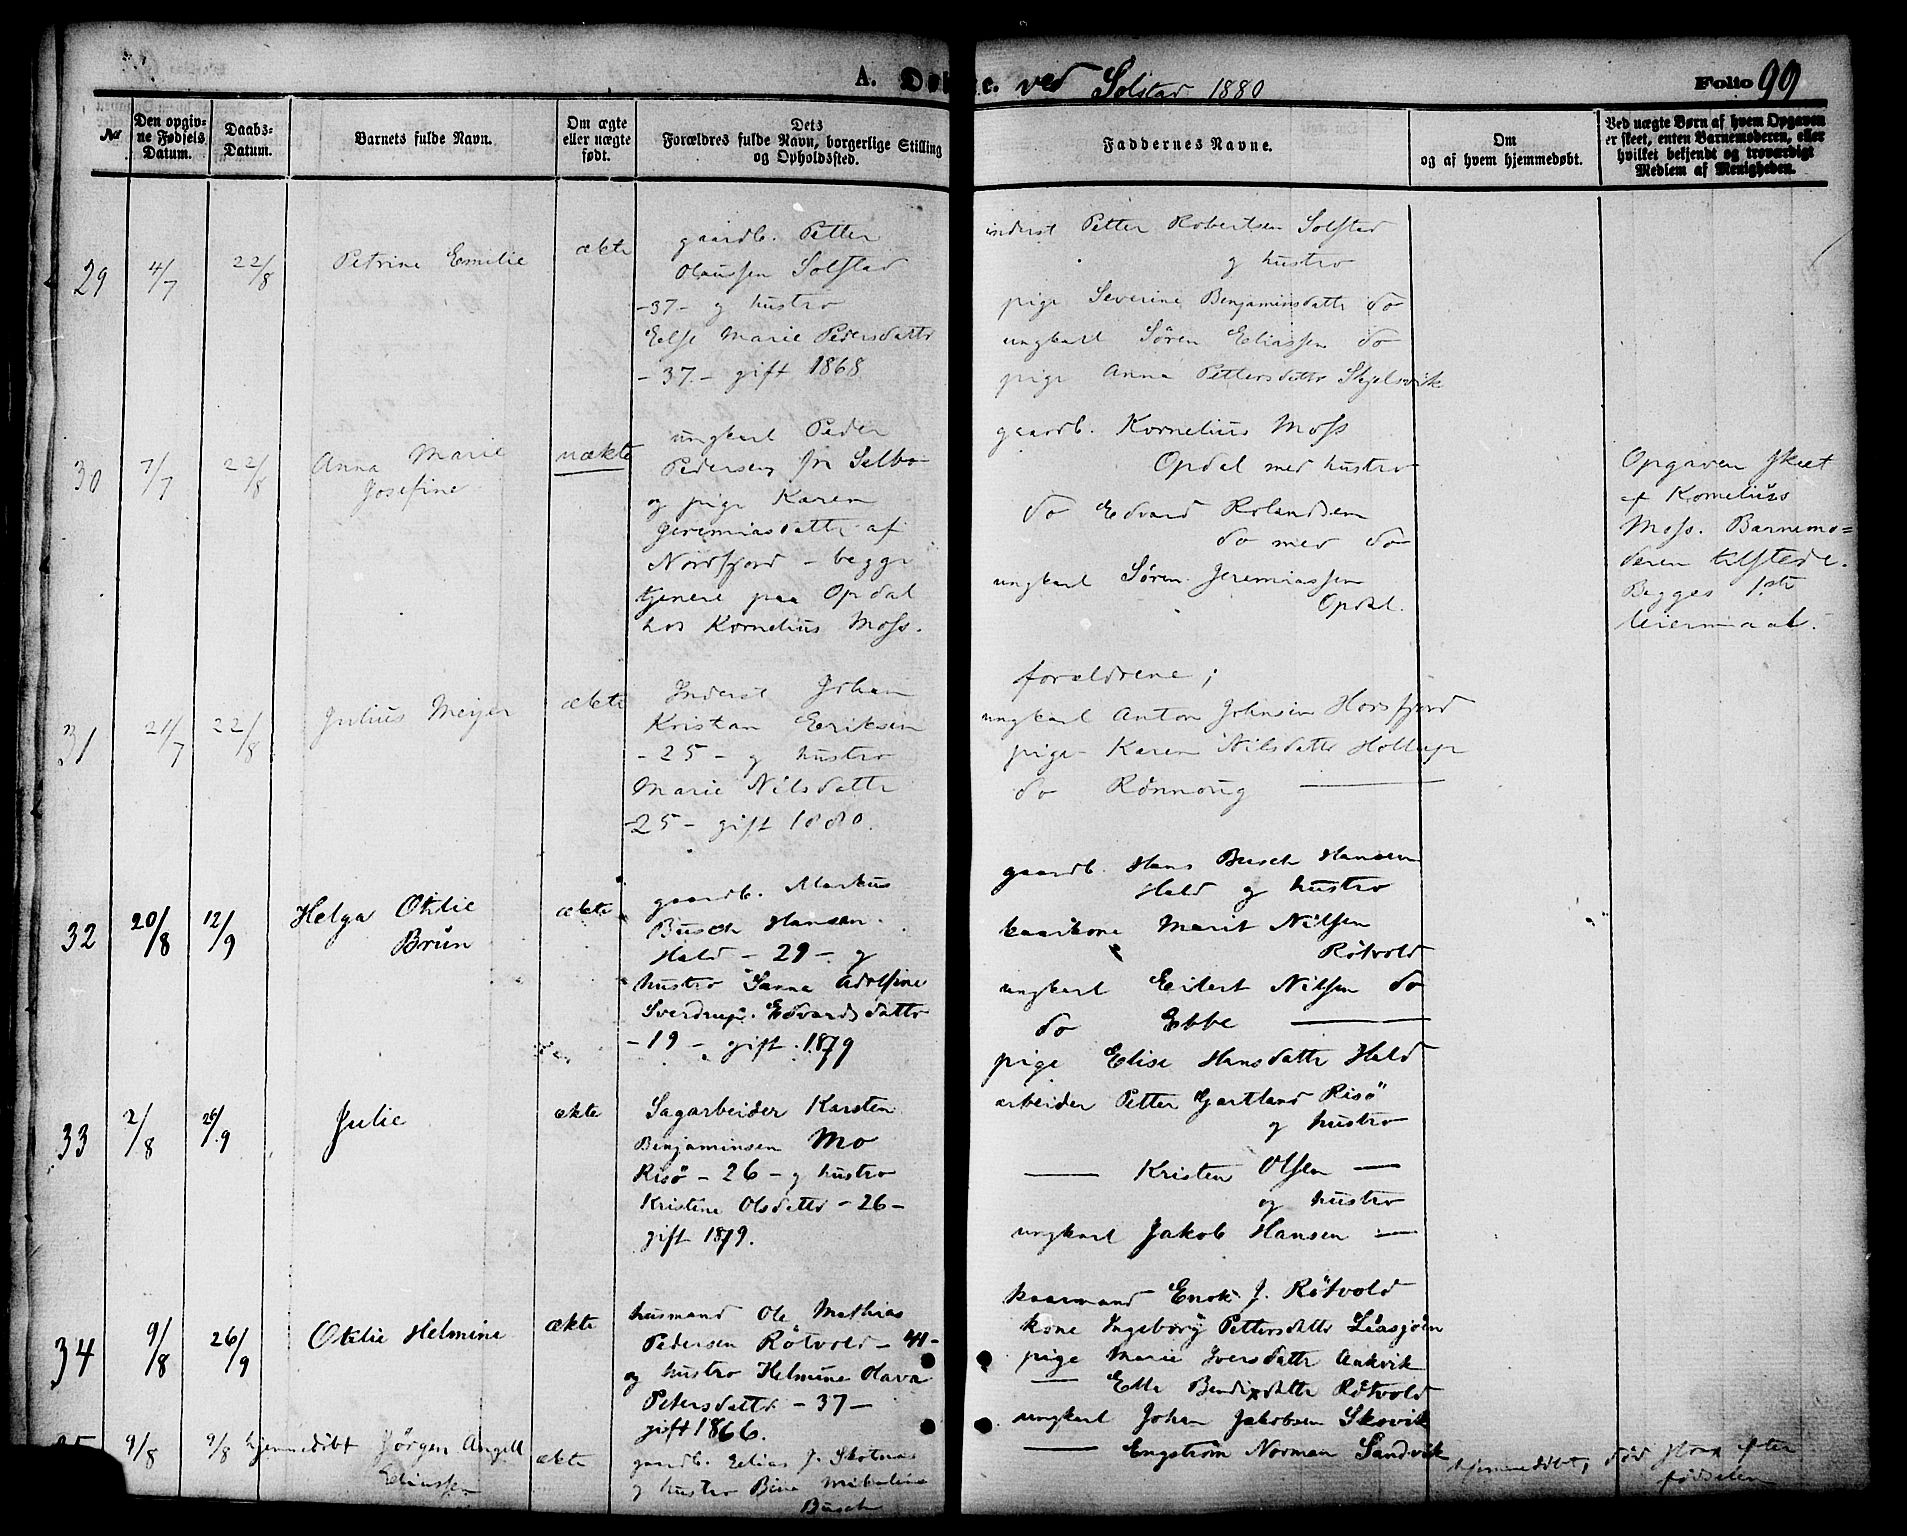 A. Døbte. ved Solstad 1880
Folio 99
No.
Den opgiv-
ne Fødsels
Datum.
Daabs-
Datum.
Barnets fulde Navn.
Om ægte
eller uægte
født.
Dets
Forældres fulde Navn, borgerlige Stilling
og Opholdssted.
Faddernes Navne.
Om
og af hvem hjemmedøbt.
Ved uægte Børn af hvem Opgaven
er skeet, enten Barnemoderen, eller
hvilket bekjendt og troværdigt
Medlem af Menigheden.
29
4/7
22/8
Petrine Emilie
ækte
gaardb. Petter
Olaussen Solstad
-37- og hustro
Else Marie Pedersdattr
-37- gift 1868
inderst Petter Robertsen Solstad
og hustro
pige Severine Benjaminsdattr do
ungkarl Søren Eliassen do
pige Anna Pettersdattr Skjelsvik
30
7/7
22/8
Anna Marie
Josefine
uækte
ungkarl Peder
Pedersen fra Selbo
og pige Karen
Jeremiasdattr af
Nordfjord - begge
tjenere paa Opdal
hos Kornelius Moss.
gaardb. Kornelius Moss
Opdal med hustro
do Edvard Rolandsen
do med do
ungkarl Søren Jeremiassen
Opdal.
Opgaven skeet
af Kornelius
Moss. Barnemo=
deren tilstede.
Begges 1ste
leiermaal.
31
21/7
22/8
Julius Meyer
ækte
Inderst Johan
Kristian Eriksen
-25- og hustro
Marie Nilsdattr
-25- gift 1880.
forældrene;
ungkarl Anton Johnsen Horsfjord
pige Karen Nilsdattr Hollup
do Rønnoug —
32
20/8
12/9
Helga Otilie
Brun
ækte
gaardb. Markus
Busch Hansen
Hald - 29 - og
hustro Sanna Adolfine
Sverdrup Edvardsdattr
-19- gift 1879
gaardb. Hans Busch Hansen
Hald og hustro
kaarkone Marit Nilsen
Røtvold
ungkarl Eilert Nilsen do
do Ebbe —
pige Elise Hansdattr Hald
33
2/8
26/9
Julie
ækte
Sagarbeider Karsten
Benjaminsen Mo
Risø - 26 - og hustro
Kristine Olsdattr - 26 -
gift 1879.
arbeider Petter Gartland Risø
og hustro
— Kristen Olsen —
og hustro
ungkarl Jakob Hansen —
34
9/8
26/9
Otilie Helmine
ækte
husmand Ole Mathias
Pedersen Røtvold - 41 -
og hustro Helmine Olava
Petersdattr - 37 -
gift 1866.
kaarmand Enok J. Røtvold
kone Ingeborg Pettersdattr
pige Marie Iversdattr Aakvik
— Elle Bendixdattr Røtvold
ungkarl Johan Jakobsen Skovik
— Engstrøm Norman Sandvik
35
9/8
9/8
hjemmedøbt Jørgen Angell
Eliassen
ækte
gaardb. Elias J. Skotnes
og hustro Bina
Busch
hjemmedøbt,
død strax efter
fødselen